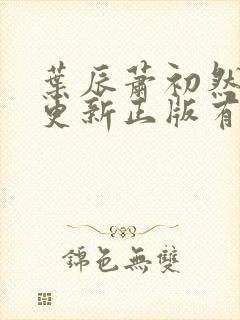 葉辰蕭初然
更新正版有
錦色無雙